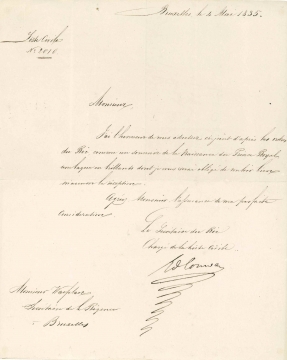 Bruxelles le 4 Mai 1835.
Liste Civile
No 2010
Monsieur
J'ai l'honneur de vous adresser ci-joint d'après les ordres
du Roi, comme un souvenir de la Naissance du Prince Royal,
une bague en brillants dont je vous serai obligé de vouloir bien
m'accuser la réception.
Agréez Monsieur l'assurance de ma parfaite
considération.
Le Secrétaire du Roi
Chargé de la liste Civile
Monsieur
Secrétaire de la Régence
à Bruxelles